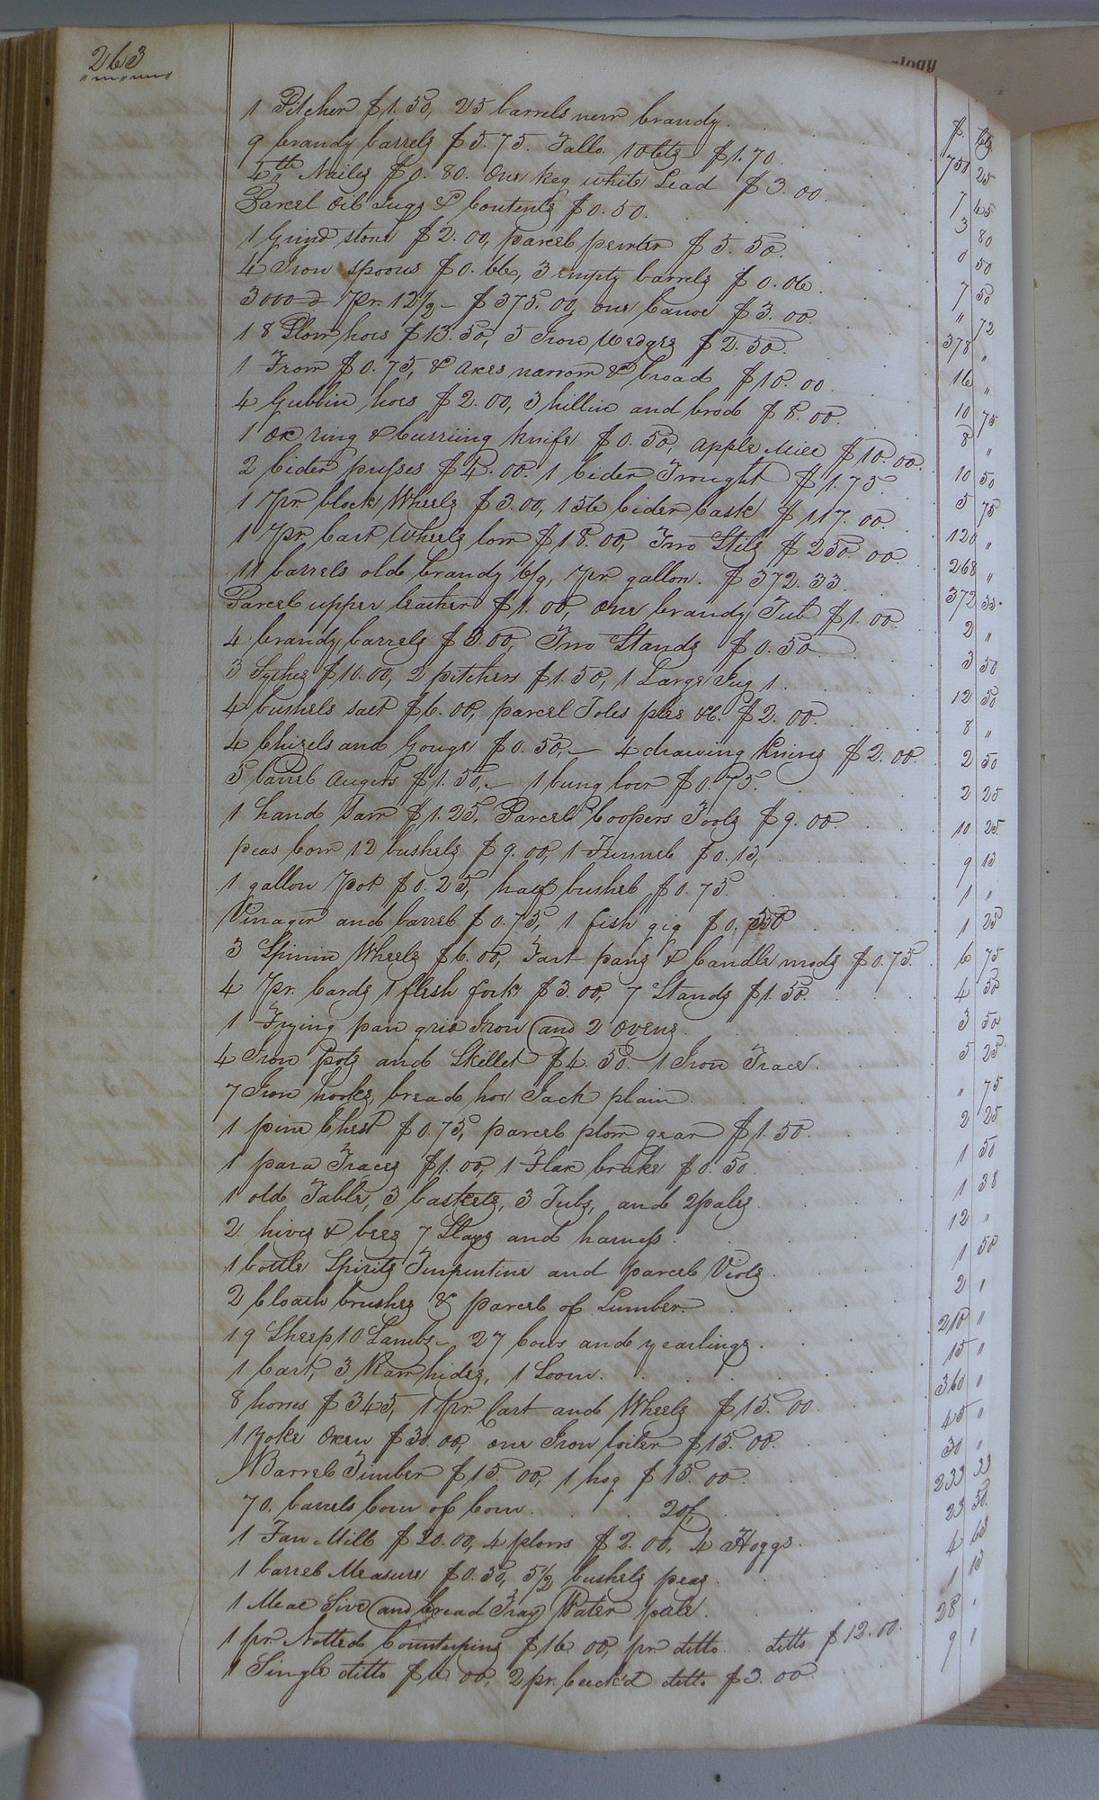 263
ology
$. Cts
1 Pitcher $1.50, 25 barrels new brandy . . . 750 25
9 brandy barrels $5.75. Tallo 10 lbs $1.70 . 7 45
4 lb Nailes $0.80. One keg white Lead $3.00 . 3 80
Parcel Oil Jugs & Contents $0.50 . 0 50
1 Grind stone $2.00, parcel pewter $5.50 . 7 50
4 Iron spoons $0.66, 3 empty barrels $0.06 . " 72
3000 pr. 12/2 - $375.00, one Canoe $3.00 378 "
18 Plow hoes $13.50, 5 Iron Wedges $2.50 . 16 "
1 Frow $0.75, & axes narrow & broad $10.00 10 75
4 Gubbin hoes $2.00, 3 hillin and brod $8.00 8 "
1 ox ring & Curriing knife $0.50, apple Mill $10.00 10 50
2 Cider presses $4.00. 1 Cider Trought $1.75 . 5 75
1 pr. block Wheels $3.00, 156 Cider Cask $117.00 120 "
1 pr. Cart Wheels low $18.00, Two Stils $250.00 268 "
11 barrels old brandy 6/9, pr. gallon. $372.33 . 372 33
Parcel upper leather $1.00, One brandy Tub $1.00 2 "
4 brandy barrels $3.00, Two Stands $0.50 3 50
3 Sythes $10.00, 2 pitchers $1.50, 1 Large Jug 1 . 12 50
4 bushels salt $6.00, parcel Toles &c. $2.00 . 8 "
4 Chizels and Gouge $0.50, - 4 drawing knives $2.00 2 50
5 barrel Augers $1.50, - 1 bung boer $0.75 . 2 25
1 hand saw $1.25, Parcel Coopers Tools $9.00 . 10 25
peas Corn 12 bushels $9.00, 1 Funnel $0.13, 9 13
1 gallon Pot $0.25, half bushel $0.75 1 "
Vinager and barrel $0.75, 1 fish gig $0.50 . 1 25
3 Spinin Wheels $6.00, Tart pans & Candle mods $0.75 6 75
4 pr. Cards 1 flesh fork $3.00, 7 Stands $1.50 . 4 50
1 Frying pan grid Iron and 2 ovens . 3 50
4 Iron pots and Skillet $4.50. 1 Iron Trace . 5 25
7 Iron hooks, bread hoe Jack plain . " 75
1 pine Chest $0.75, parcel plow gear $1.50 . 2 25
1 para Traces $1.00, 1 Flax brake $0.50 . 1 50
1 old Table, 3 baskets, 3 Tubs, and 2 pales . 1 38
2 hives & bees 7 Slays and harness . 12 "
1 bottle Spirits Turpentine and parcel Viols . 1 50
2 Cloath brushes & parcel of Lumber . 2 "
19 Sheep 10 Lambs - 27 Cows and yearlings . 210 "
1 Cart, 3 Raw hides, 1 Loom . 15 "
8 horses $345, 1 pr. Cart and Wheels $15.00 . 360 "
1 Yoke Oxen $30.00, one Iron boiler $15.00 . 45 "
Barrel Timber $15.00, 1 hog $15.00 . 30 "
70 barrels Corn of Corn . . . 20/, 233 33
1 Fan Mill $20.00, 4 plows $2.00, 4 Hoggs . 23 50
1 barrel Measure $0.50, 5 1/2 bushels peas . 4 63
1 Meal Sive and bread Tray Water pale . 1 13
1 pr Notted Counterpins $16.00, pr. ditto ditto $12.00 28 "
1 Single ditto $6.00, 2 pr. ditto $3.00 9 "